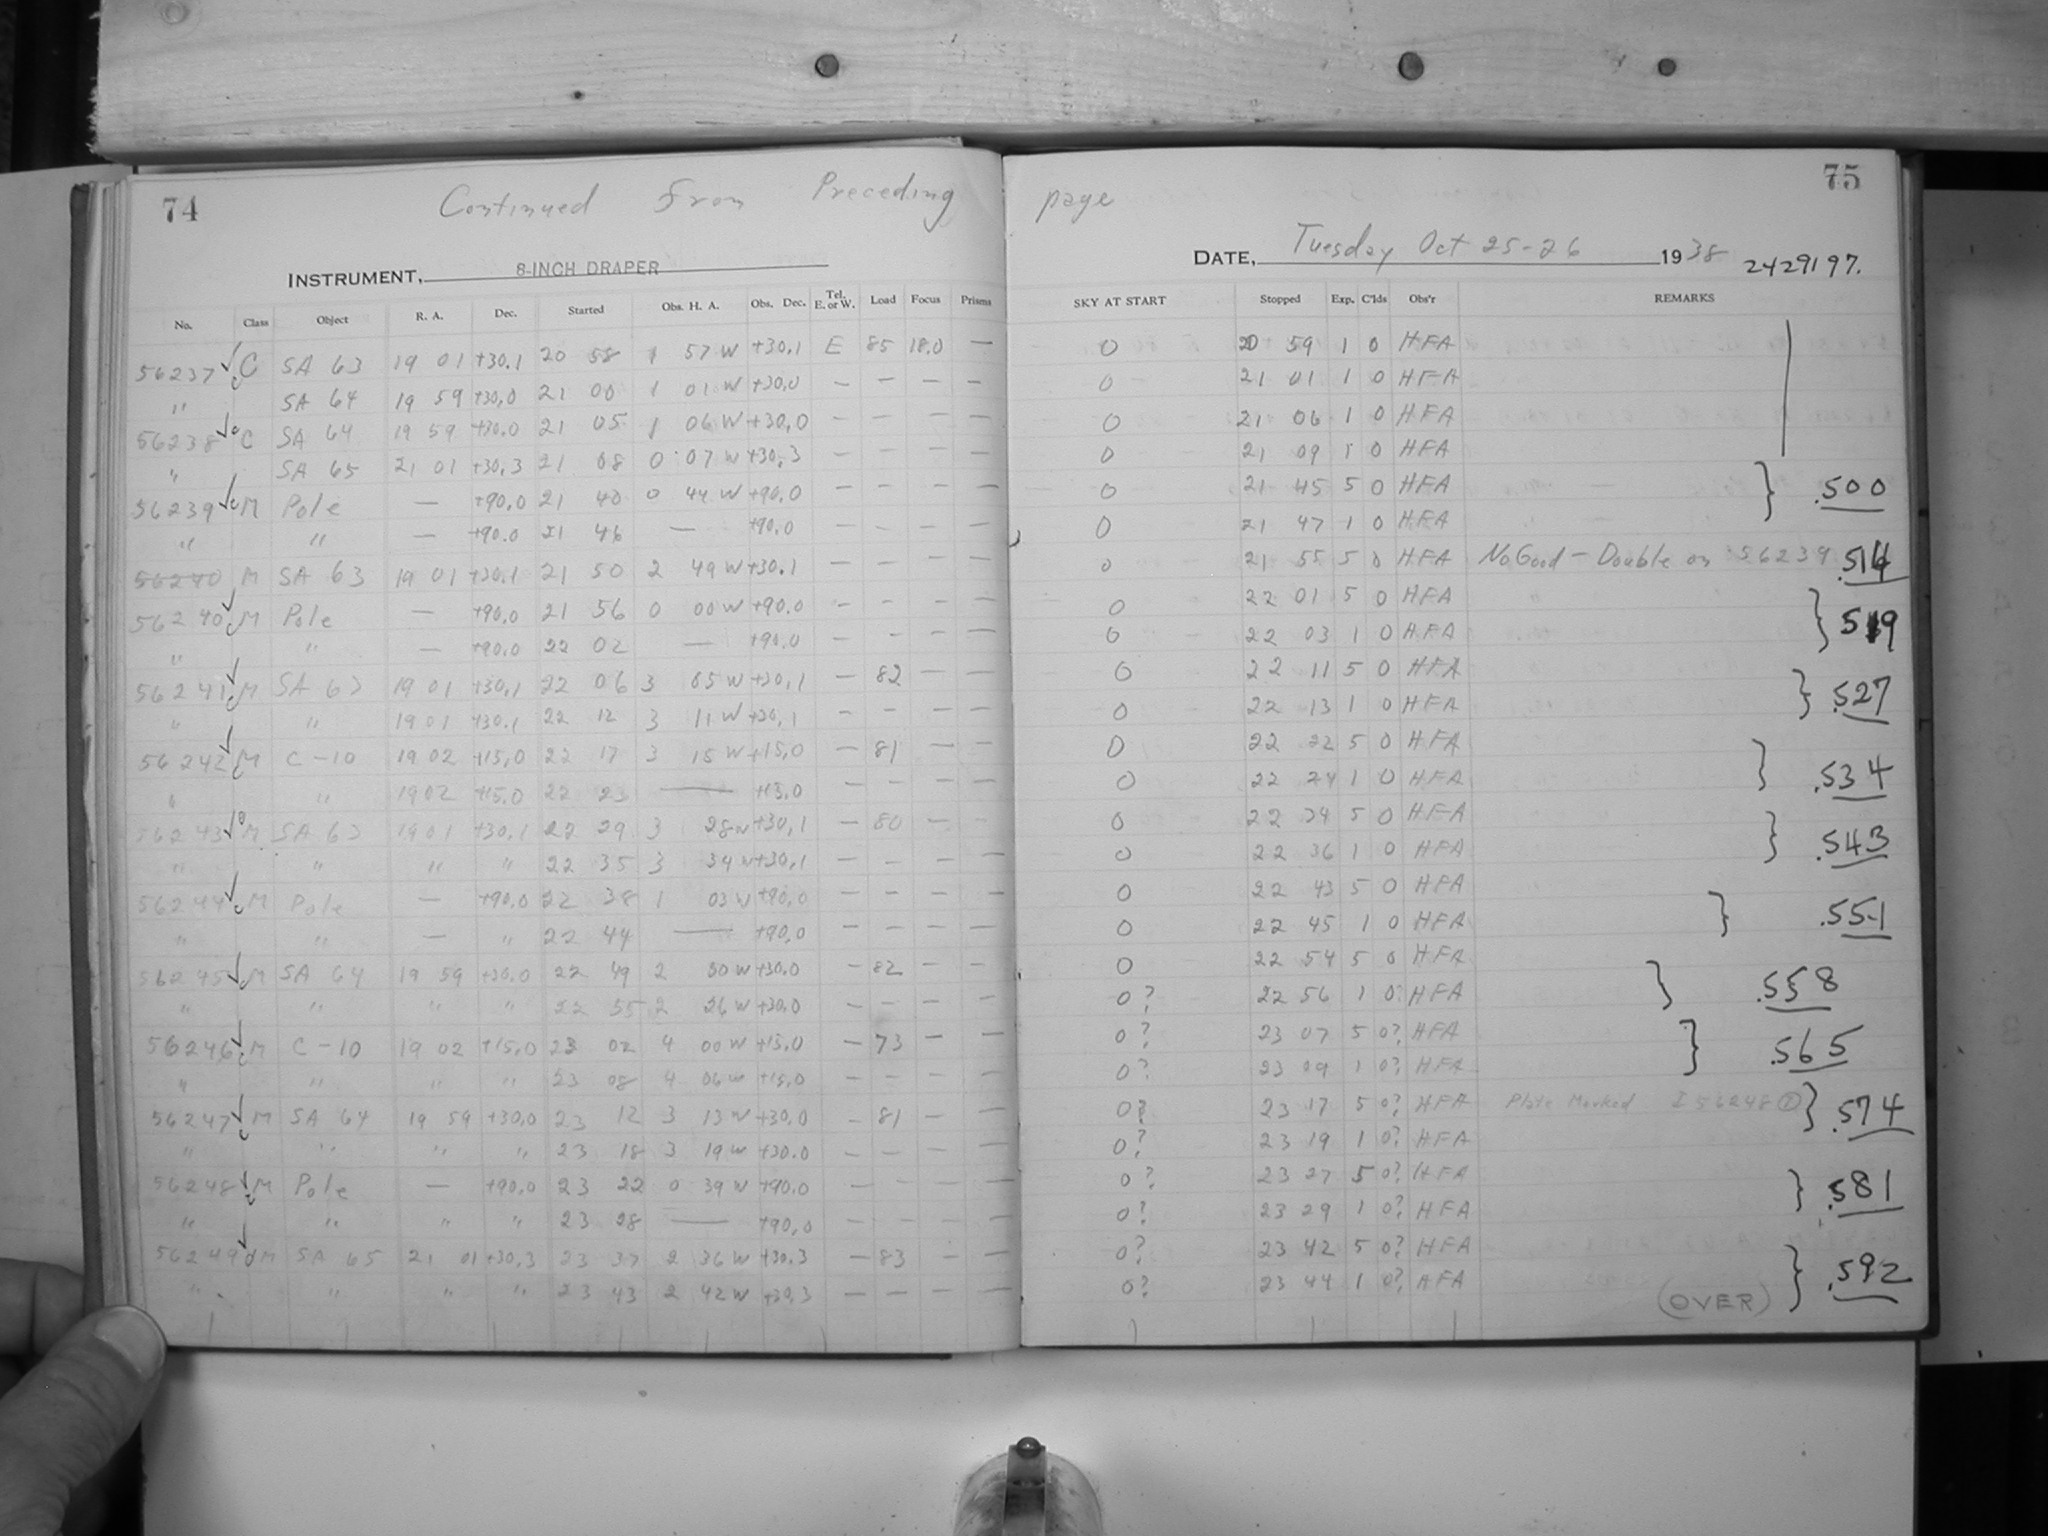 74 Continued from Preceding page 75
INSTRUMENT, 8-INCH DRAPER DATE, Tuesday Oct 25-26 1938 2429197.
No. Class Object R. A. Dec. Started Obs. H. A. Obs. Dec. Tel. E. or W. Load Focus Prisms SKY AT START Stopped Exp. C'lds Obs'r REMARKS
56237 C SA 63 19 01 +30.1 20 58 1 57 W +30.1 E 85 18.0 — 0 20 59 1 0 HFA
" SA 64 19 59 +30.0 21 00 1 01 W +30.0 — — — — 0 21 01 1 0 HFA
56238 C SA 64 19 59 +30.0 21 05 1 06 W +30.0 — — — — 0 21 06 1 0 HFA
" SA 65 21 01 +30.3 21 08 0 07 W +30.3 — — — — 0 21 09 1 0 HFA
56239 M Pole — +90.0 21 40 0 44 W +90.0 — — — — 0 21 45 5 0 HFA } .500
" " — +90.0 21 46 — +90.0 — — — — 0 21 47 1 0 HFA
56240 M SA 63 19 01 +30.1 21 50 2 49 W +30.1 — — — — 0 21 55 5 0 HFA No Good — Double on 56239 .514
56240 M Pole — +90.0 21 56 0 00 W +90.0 — — — — 0 22 01 5 0 HFA } .519
" " — +90.0 22 02 — +90.0 — — — — 0 22 03 1 0 HFA
56241 M SA 63 19 01 +30.1 22 06 3 05 W +30.1 — 82 — — 0 22 11 5 0 HFA } .527
" " 19 01 +30.1 22 12 3 11 W +30.1 — — — — 0 22 13 1 0 HFA
56242 M C-10 19 02 +15.0 22 17 3 15 W +15.0 — 81 — — 0 22 22 5 0 HFA } .534
" " 19 02 +15.0 22 23 — +15.0 — — — — 0 22 24 1 0 HFA
56243 M SA 63 19 01 +30.1 22 29 3 28 W +30.1 — 80 — — 0 22 34 5 0 HFA } .543
" " " " 22 35 3 34 W +30.1 — — — — 0 22 36 1 0 HFA
56244 M Pole — +90.0 22 38 1 03 W +90.0 — — — — 0 22 43 5 0 HFA } .551
" " — " 22 44 — +90.0 — — — — 0 22 45 1 0 HFA
56245 M SA 64 19 59 +30.0 22 49 2 50 W +30.0 — 82 — — 0 22 54 5 0 HFA } .558
" " " " 22 55 2 56 W +30.0 — — — — 0? 22 56 1 0? HFA
56246 M C-10 19 02 +15.0 23 02 4 00 W +15.0 — 73 — — 0? 23 07 5 0? HFA } .565
" " " " 23 08 4 06 W +15.0 — — — — 0? 23 09 1 0? HFA
56247 M SA 64 19 59 +30.0 23 12 3 13 W +30.0 — 81 — — 0? 23 17 5 0? HFA Plate Marked I 56248 } .574
" " " " 23 18 3 19 W +30.0 — — — — 0? 23 19 1 0? HFA
56248 M Pole — +90.0 23 22 0 39 W +90.0 — — — — 0? 23 27 5 0? HFA } .581
" " " " 23 28 — +90.0 — — — — 0? 23 29 1 0? HFA
56249 M SA 65 21 01 +30.3 23 37 2 36 W +30.3 — 83 — — 0? 23 42 5 0? HFA } .592
" " " " 23 43 2 42 W +30.3 — — — — 0? 23 44 1 0? HFA
(OVER)